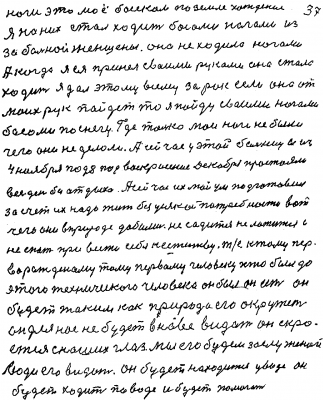 37
ноги это моё босиком по земле хождение
я на них стал ходить босыми ногами из
за больной женщины. она не ходила ногами
А когда я ея принял своими руками она стала
ходить я дал этому всему зарок если она от
моих рук пойдет то я пойду своими ногами
босыми по снегу. Где только мои ноги не были
чего они не делали. А сейчас у этой
4 ноября по 28 пор воскресение Декабря простояли
без еды бы отдыха. А сейчас их мой ум подготовил
за счет их надо жить без усякой потребности вот
чего они в природе добились. не садится не ложится и
не спать привести себя к естеству. т/е к тому пер-
ворожденому тому первому человеку кто был до
этого технического человека он был он есть он
будет таким как природа его окружает
он для нас не будет вновь видать он скро-
ется с наших глаз. мы его будем заслуженой
люди его видать. он будет находится у воде он
будет ходить по воде и будет помогать